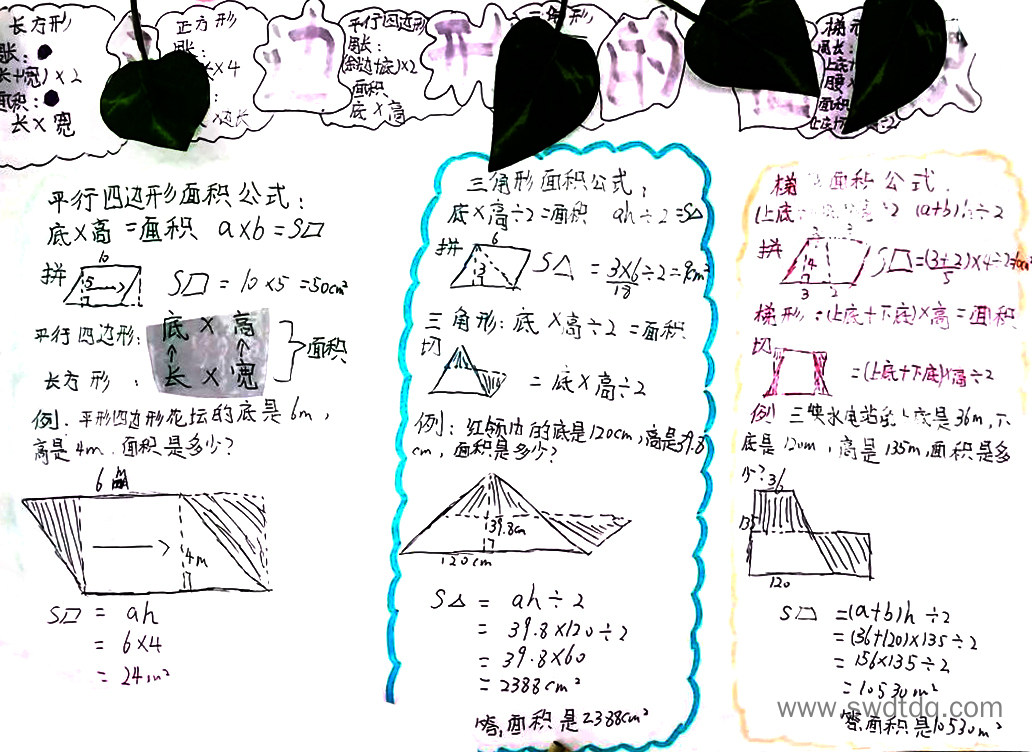 长方形
周长：
长+宽）×2
面积：
长×宽
正方形
周长：
长×4
边长
平行四边形
周长：
(斜边+底)×2
面积
底×高
的
面积
平行四边形面积公式：
底×高=面积 a×b=S▱
拼
10
5
S▱=10×5=50cm²
平行四边形：底×高
面积
长方形：长×宽
例：平形四边形花坛的底是6m，
高是4m，面积是多少？
6m
4m
S▱=ah
=6×4
=24m²
三角形面积公式：
底×高÷2=面积 ah÷2=S△
拼
6
3
S△=3×6÷2=9cm²
18
三角形：底×高÷2=面积
切
=底×高÷2
例：红领巾的底是120cm，高是39.8
cm，面积是多少？
39.8cm
120cm
S△=ah÷2
=39.8×120÷2
=39.8×60
=2388cm²
答：面积是2388cm²
面积公式：
(上底 (a+b)h÷2
拼
4
3 2
=(3+2)×4÷2=
5
梯形：(上底+下底)×高=面积
切
=(上底+下底)×高÷2
例 三峡水电站 底是36m，下
底是120m，高是135m，面积是多
少？
36
135
120
S=(a+b)h÷2
=(36+120)×135÷2
=156×135÷2
=10530m²
答：面积是10530m²
www.swdtdq.com